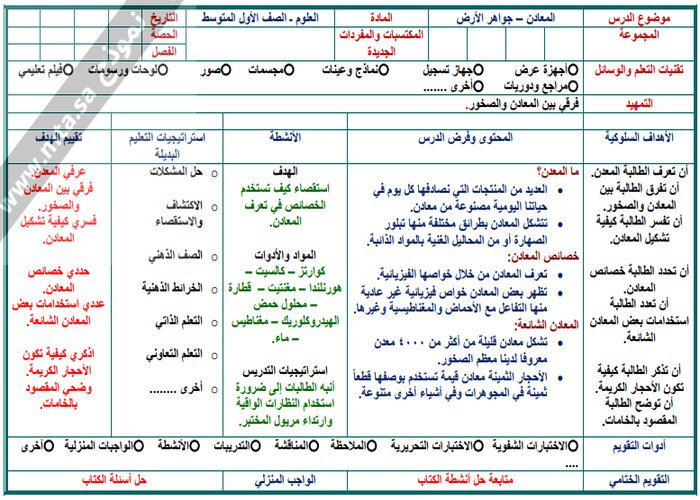 موضوع الدرس
المعادن – جواهر الأرض
المادة
العلوم - الصف الأول المتوسط
التاريخ
المجموعة
المكتسبات والمفردات الجديدة
الحصة
الفصل
تقنيات التعلم والوسائل
أجهزة عرض
جهاز تسجيل
نماذج وعينات
مجسمات
صور
لوحات ورسومات
فيلم تعليمي
مراجع ودوريات
أخرى .......
التمهيد
فرقي بين المعادن والصخور.
الأهداف السلوكية
المحتوى وفرض الدرس
الأنشطة
استراتيجيات التعليم البديلة
تقييم الهدف
أن تعرف الطالبة المعدن.
أن تفرق الطالبة بين
المعادن والصخور.
أن تفسر الطالبة كيفية
تشكيل المعدن.
أن تحدد الطالبة خصائص
المعدن.
أن تعدد الطالبة
استخدامات بعض المعادن
الشائعة.
أن تذكر الطالبة كيفية
تكون الأحجار الكريمة.
أن توضح الطالبة
المقصود بالخامات.
ما المعدن؟
العديد من المنتجات التي نصادفها كل يوم في
حياتنا اليومية مصنوعة من معادن.
تتشكل المعدن بطرائق مختلفة منها تبلور
الصهارة أو من المحاليل الغنية بالمواد الذائبة.
خصائص المعدن:
تعرف المعادن من خلال خواصها الفيزيائية.
تظهر بعض المعدن خواص فيزيائية غير عادية
منها التفاعل مع الأحماض والمغناطيسية وغيرها.
المعدن الشائعة:
تشكل معادن قليلة من أكثر من ٤٠٠٠ معدن
معروفا لدينا معظم الصخور.
الأحجار الثمينة معادن قيمة تستخدم بوصفها قطعاً
ثمينة في المجوهرات وفي أشياء أخرى متنوعة.
الهدف
استقصاء كيف تستخدم
الخصائص في تعرف
المعادن.
المواد والأدوات
كوارتز – كالسيت –
هورنبلندا – مغنتيت – قطارة
– محلول حمض
الهيدروكلوريك – مغناطيس
– ماء.
استراتيجيات التدريس
أنبه الطالبات إلى ضرورة
استخدام النظارات الواقية
وارتداء مريول المختبر.
حل المشكلات
الاكتشاف
والاستقصاء
الصف الذهني
الخرائط الذهنية
التعلم الذاتي
التعلم التعاوني
أخرى ........
عرفي المعدن.
فرقي بين المعادن
والصخور.
فسري كيفية تشكيل
المعادن.
حددي خصائص
المعدن.
عددي استخدامات بعض
المعادن الشائعة.
اذكري كيفية تكون
الأحجار الكريمة.
وضحي المقصود
بالخامات.
أدوات التقويم
الاختبارات الشفوية
الاختبارات التحريرية
الملاحظة
المناقشة
التدريبات
الأنشطة
الواجبات المنزلية
أخرى
....
التقويم الختامي
متابعة حل أنشطة الكتاب
الواجب المنزلي
حل أسئلة الكتاب